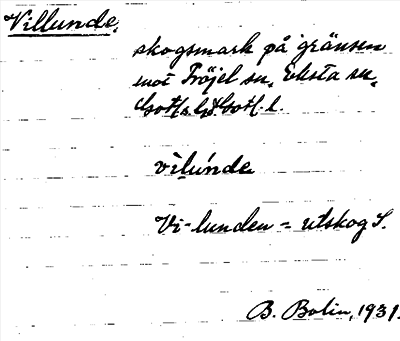 Villunde,
skogsmark på gränsen
mot Fröjel sn, Eksta sn,
Gotl. l.
vìlúnde
Vi-lunden = utskog S.
B. Bolin, 1931.